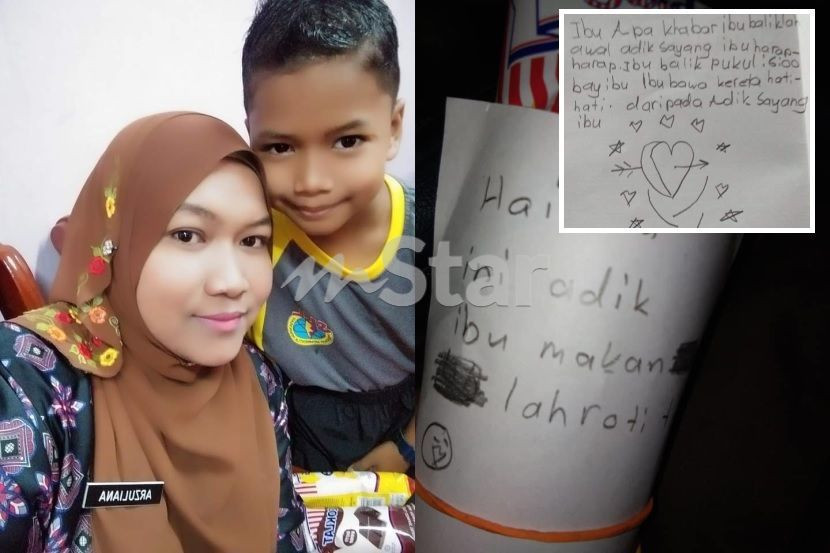 Ibu Apa khabar ibu baliklah
awal adik sayang ibu harap-
harap. Ibu balik pukul :6:00
bay ibu Ibu bawa kereta hati-
hati. daripada Adik Sayang
ibu
Hai
ini adik
ibu makan
lah roti
mStar
ARZULIANA
KLAT